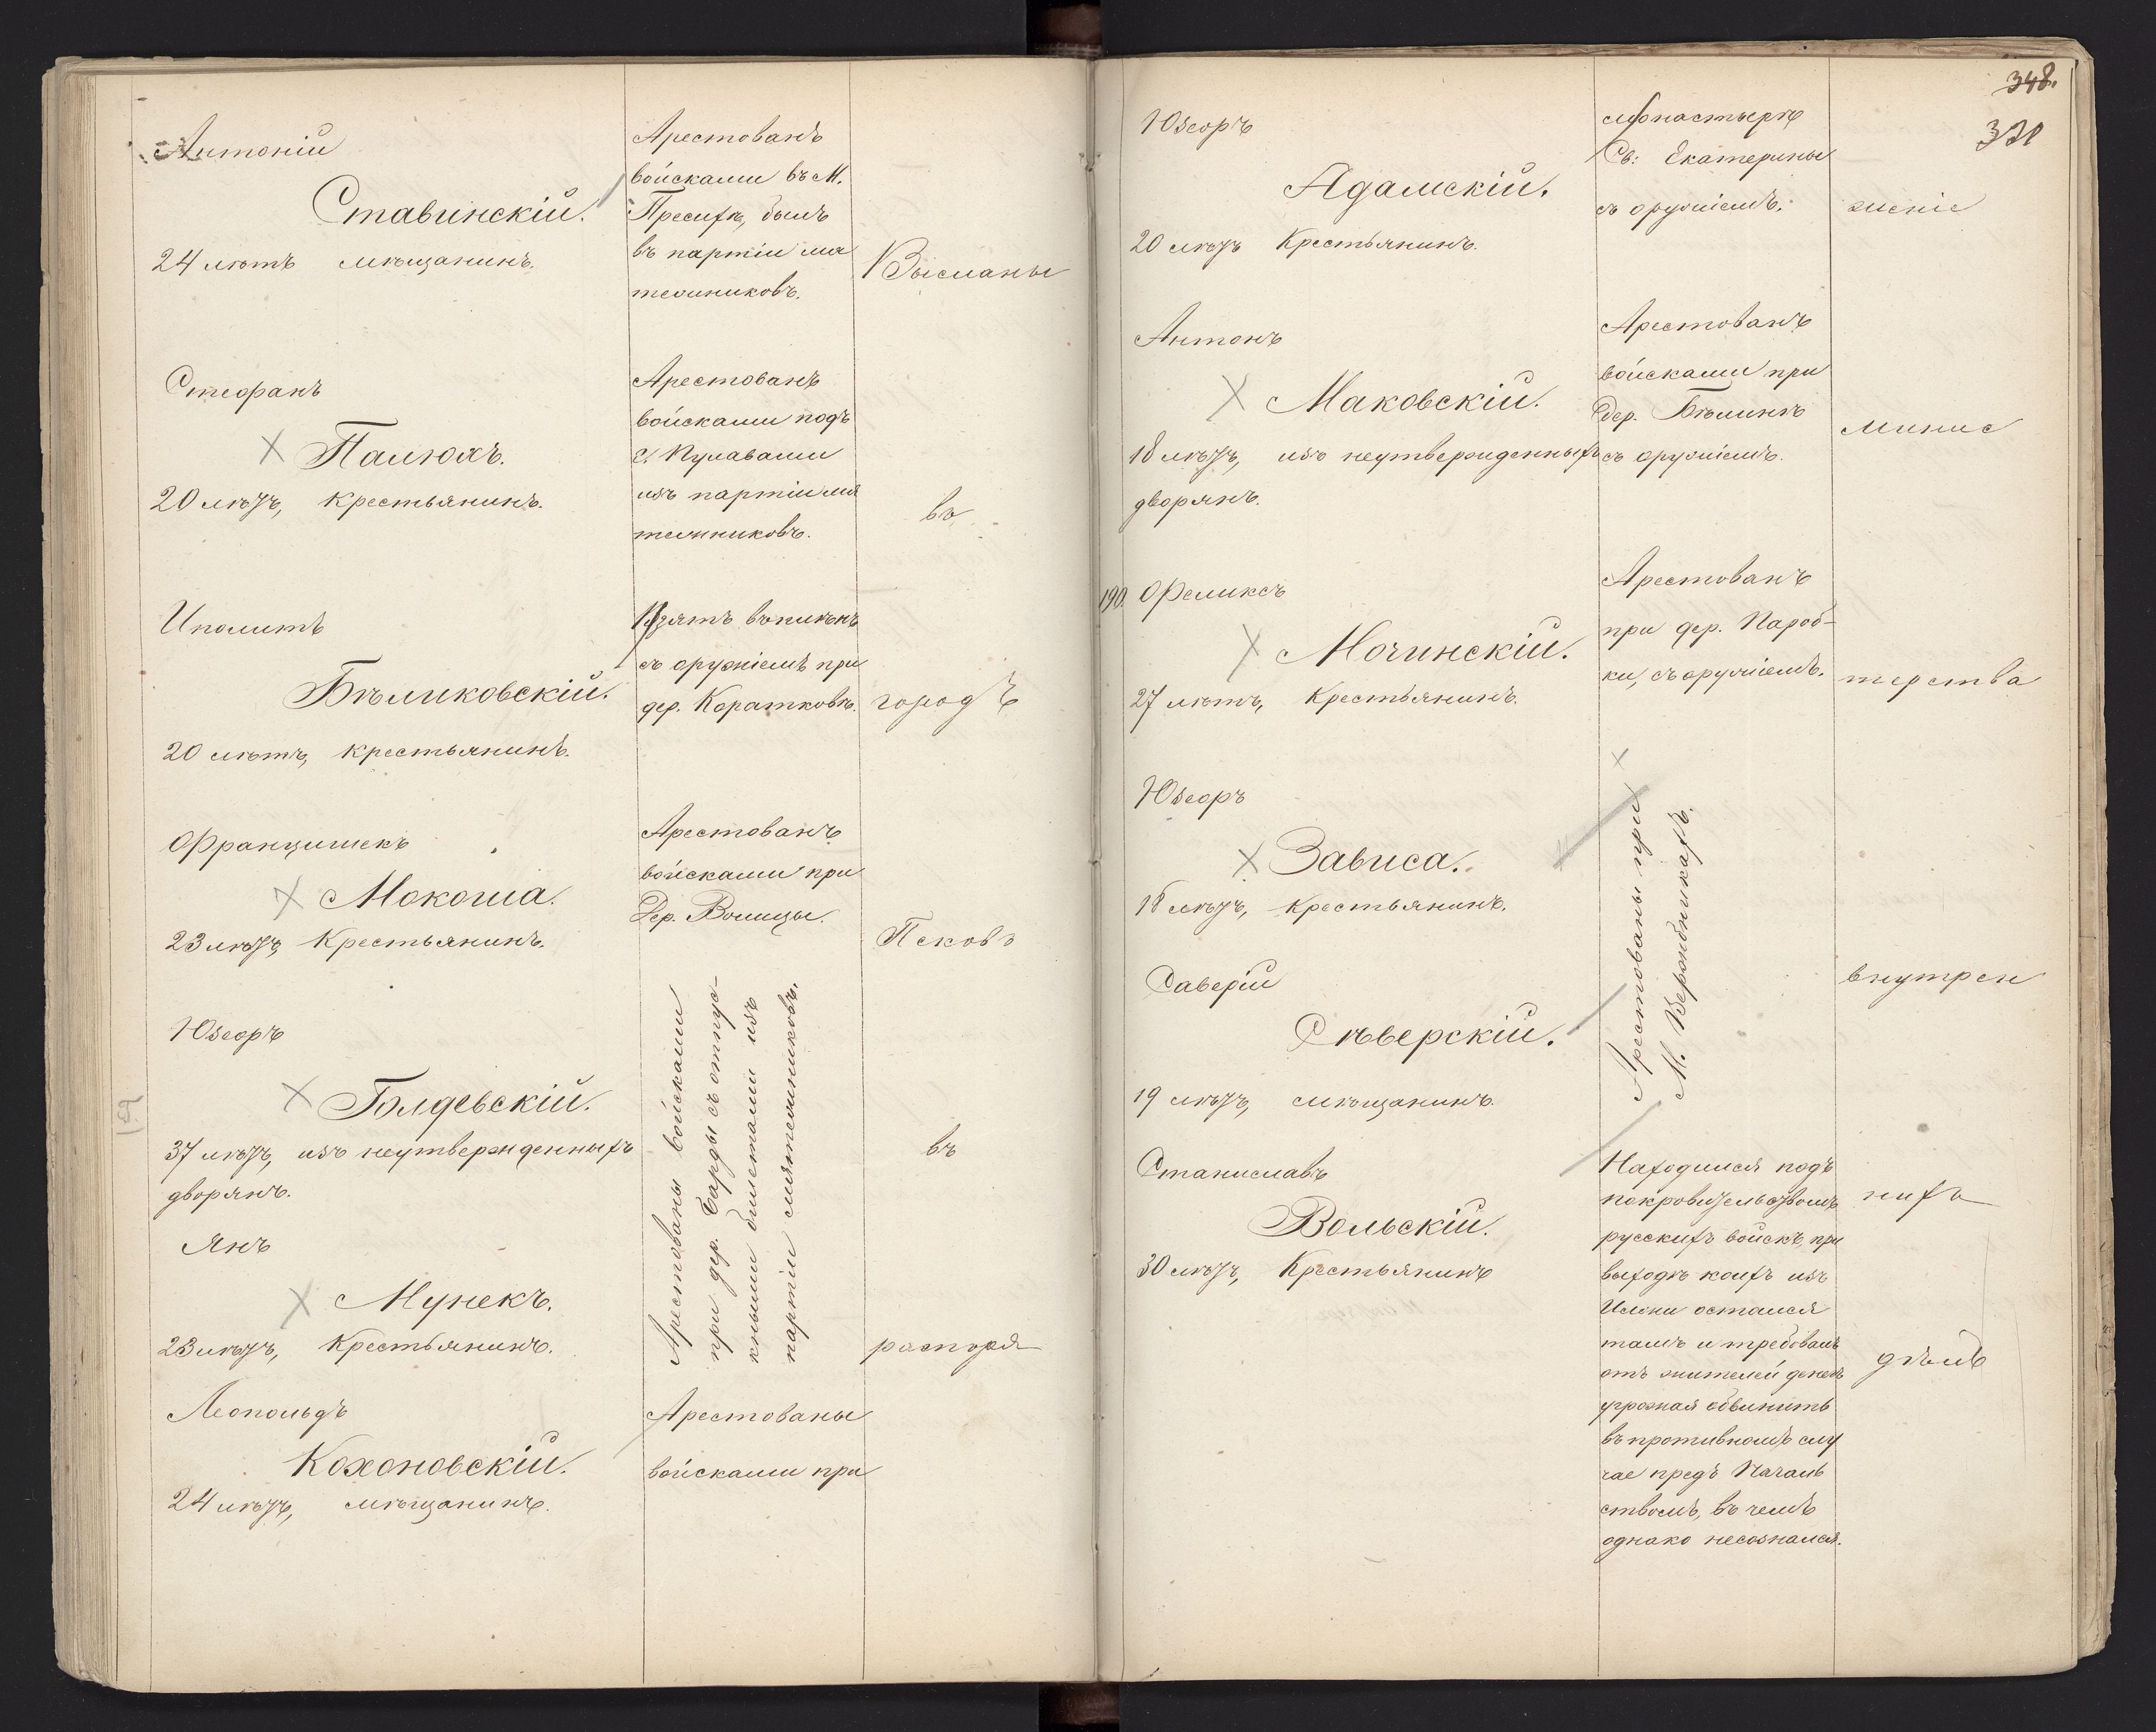 Антоній
Ставинскій.
24 лѣтъ мѣщанинъ.
Арестованъ
войсками въ М.
былъ
въ партіи мя
тежниковъ.
Высланы
Стефанъ
Палюхъ.
20 лѣтъ, крестьянинъ.
Арестованъ
войсками подъ
с. Пулавами
изъ партіи мя
тежниковъ.
въ
Иполитъ
Бѣликовскій.
20 лѣтъ, крестьянинъ.
Взятъ въ плѣнъ
съ оружіемъ при
дер. Коратковѣ.
городъ
Францишекъ
Мокоша.
23 лѣтъ, Крестьянинъ.
Арестованъ
войсками при
Дер. Волицы.
Псковъ
Юзефъ
Голдевскій.
37 лѣтъ, изъ неутвержденныхъ
дворянъ.
въ
Янъ
Мунекъ.
23 лѣтъ, Крестьянинъ.
Арестованы войсками
при дер. Барды съ отпус-
кными билетами изъ
партіи мятежниковъ.
распоря
Леопольдъ
Кохоновскій.
24 лѣтъ, мѣщанинъ.
Арестованы
войсками при
348.
331
Юзефъ
Адамскій.
20 лѣтъ Крестьянинъ.
монастырѣ
Св: Екатерины
съ оружіемъ.
женіе
Антонъ
Маковскій.
18 лѣтъ, изъ неутвержденныхъ
дворянъ.
Арестованъ
войсками при
Дер. Бѣлинѣ
съ оружіемъ.
минис
190. Феликсъ
Мочинскій.
27 лѣтъ, Крестьянинъ.
Арестованъ
при дер. Пароб-
ки, съ оружіемъ.
терства
Юзефъ
Зависа.
18 лѣтъ, Крестьянинъ.
Саверій
Сѣверскій.
19 лѣтъ, мѣщанинъ.
Арестованы при
М. Вероибникахъ.
внутрен
Станиславъ
Вольскій.
30 лѣтъ, Крестьянинъ
Находился подъ
покровительствомъ
русскихъ войскъ, при
выходѣ коихъ изъ
Илжи остался
тамъ и требовалъ
отъ жителей денегъ
угрожая обвинить
въ противномъ слу
чае предъ Началь
ствомъ, въ чемъ
однако несознался.
нихъ
дѣлъ